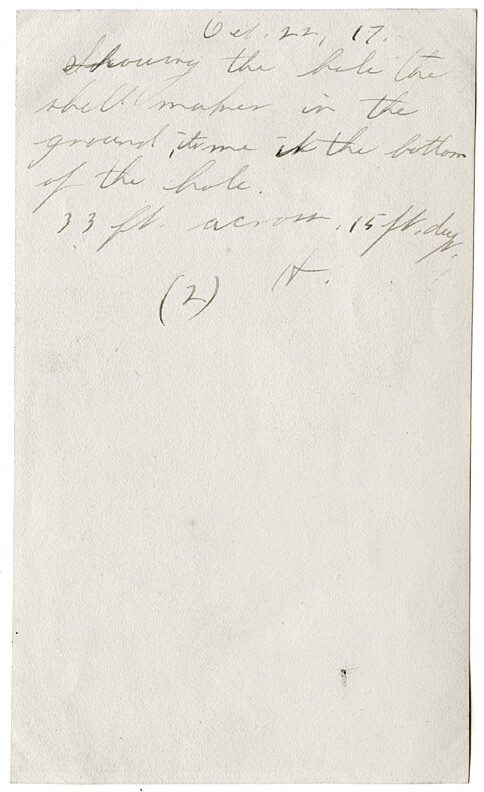 Oct. 22, 17.
Showing the hole the
shell makes in the
ground, me the bottom
of the hole.
33 ft. across, 15 ft. deep.
H.
(2)